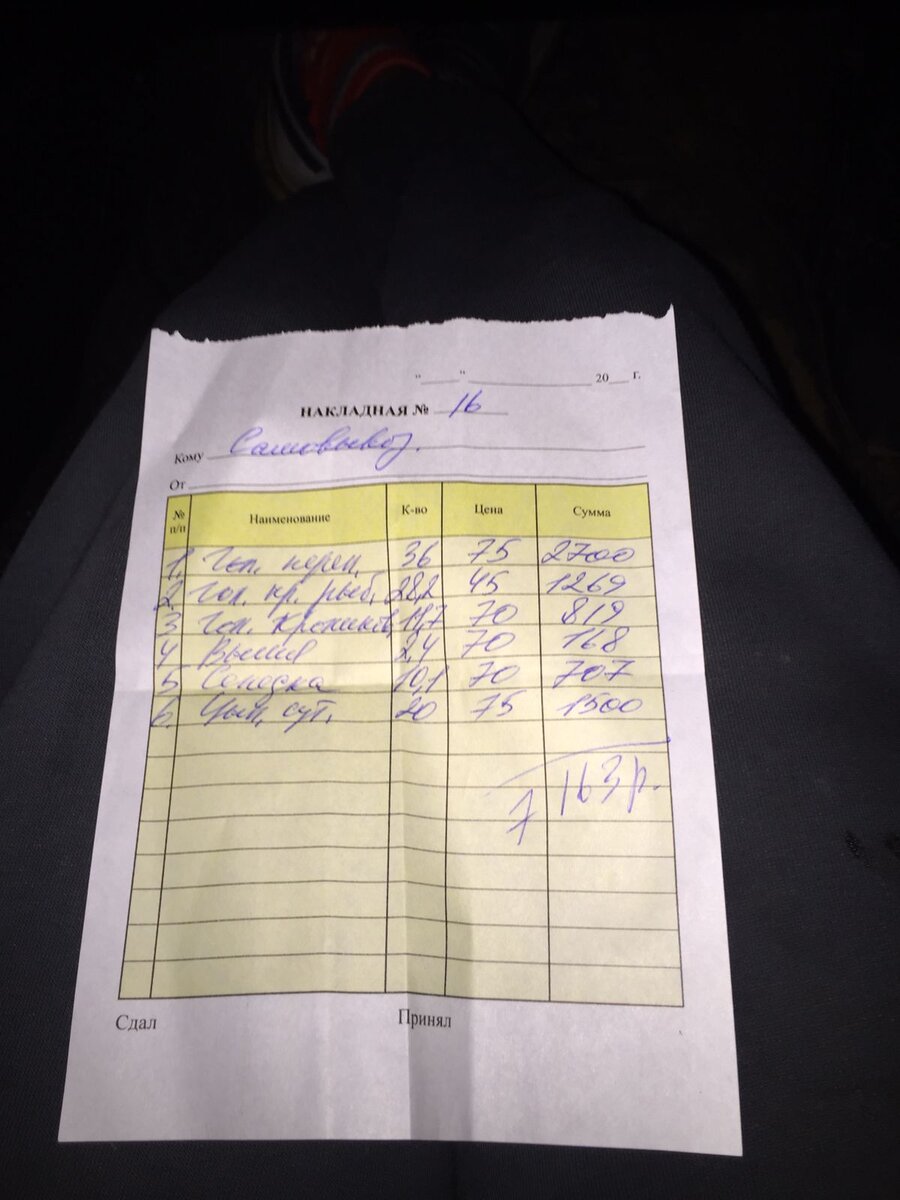 " " 20 г.
НАКЛАДНАЯ № 16
Кому Самовывоз.
От
№ п/п Наименование К-во Цена Сумма
1. Гол. 36 75 2700
2. Гол. кр. рыб. 28,2 45 1269
3 Гол. Кроликов 11,7 70 819
4 Вымя 2,4 70 168
5 Селедка 10,1 70 707
6. Цып. сут. 20 75 1500
7 163 р.
Сдал Принял